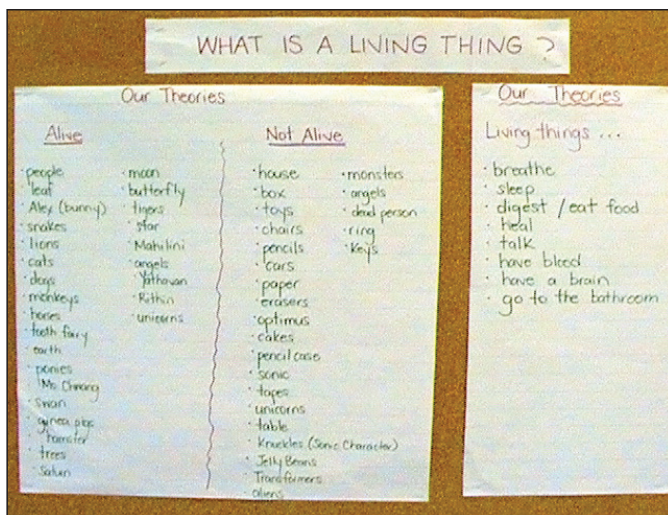 WHAT IS A LIVING THING ?
Our Theories
Alive
· people
· leaf
· Alex (bunny)
· snakes
· lions
· cats
· dogs
· monkeys
· horses
· tooth fairy
· earth
· ponies
· swan
· guinea pigs
· hamster
· trees
· Saturn
· moon
· butterfly
· tigers
· star
· Mahilini
· angels
· Yathavan
· Rithin
· unicorns
Not Alive
· house
· box
· toys
· chairs
· pencils
· cars
· paper
· erasers
· optimus
· cakes
· pencil case
· sonic
· tapes
· unicorns
· table
· Knuckles (Sonic Character)
· Jelly Beans
· Transformers
· aliens
· monsters
· angels
· dead person
· ring
· keys
Our Theories
Living things ...
· breathe
· sleep
· digest / eat food
· heal
· talk
· have blood
· have a brain
· go to the bathroom